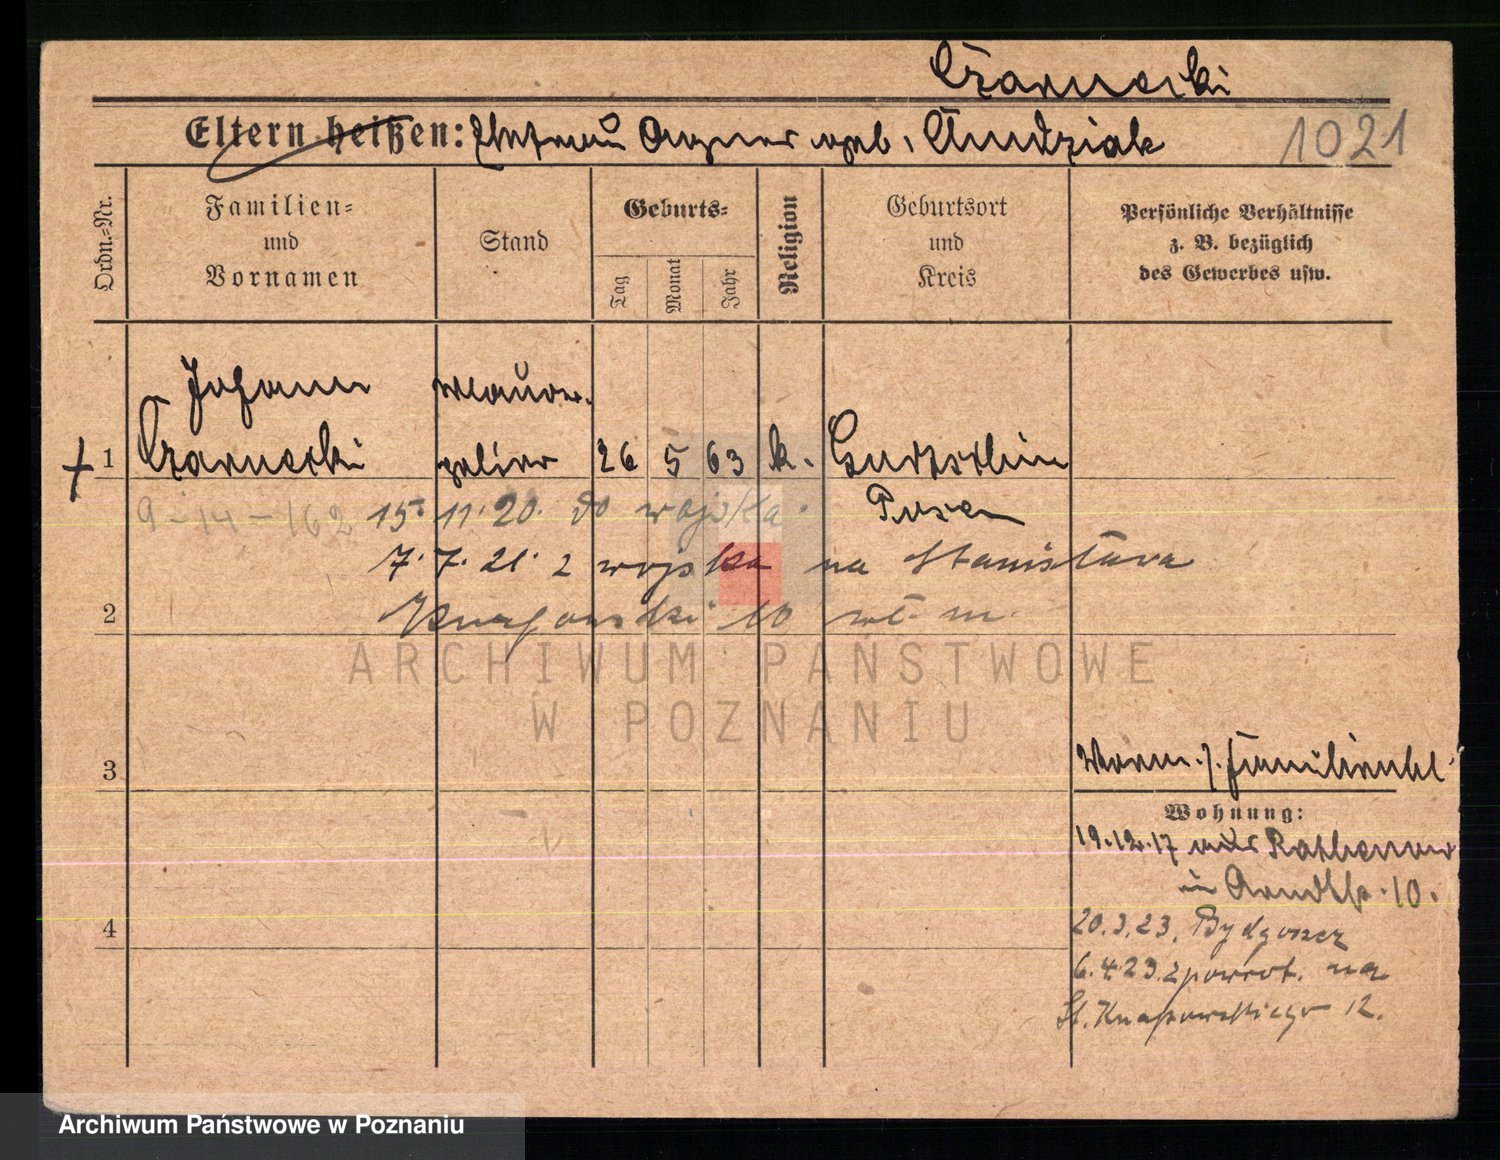 Czarnecki
Eltern heißen: Ehefrau Agnes geb. Andziak
1021
Ordn.-Nr.
Familien-
und
Vornamen
Stand
Geburts-
Tag
Monat
Jahr
Religion
Geburtsort
und
Kreis
Persönliche Verhältnisse
z. B. bezüglich
des Gewerbes usw.
Johann Maurer-
+ 1 Czarnecki polier 26 5 63 k. Gurtschin
9-14-162 15 11. 20. do wojska. Posen
7. 7. 21. z wojska na Stanisława
2 10 wł. m.
3
Familienbl.
Wohnung:
19.12.17 aus Rathenow
in Arndtstr. 10.
4 20.3.23. Bydgoszcz
6.4.23. z powrot. na
St. Knapowskiego 12.
ARCHIWUM PAŃSTWOWE
W POZNANIU
Archiwum Państwowe w Poznaniu